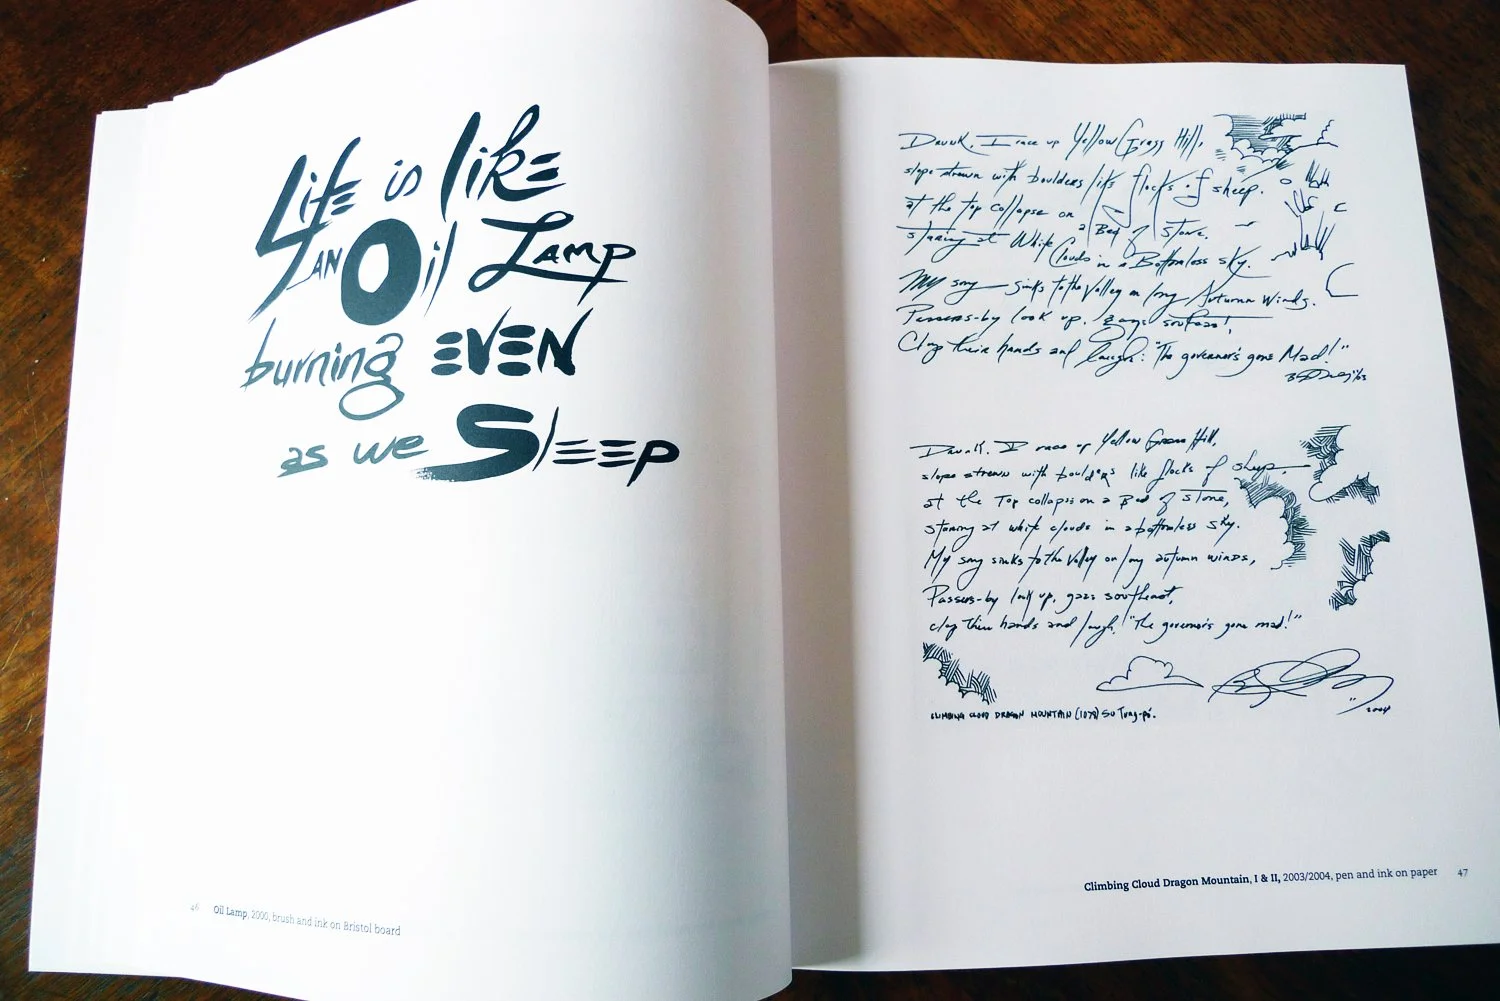 Life is like
AN Oil Lamp
burning EVEN
as we Sleep
46 Oil Lamp, 2000, brush and ink on Bristol board
Drunk, I race up Yellow Grass Hill,
slope strewn with boulders like flocks of sheep.
at the top collapse on a Bed of stone,
staring at White Clouds in a Bottomless sky.
My song sinks to the Valley on long Autumn Winds.
Passers-by look up, gaze southeast,
Clap their hands and laugh: "The governor's gone Mad!"
Drunk, I race up Yellow Grass Hill,
slope strewn with boulders like flocks of sheep.
at the Top collapse on a Bed of stone,
staring at white clouds in a bottomless sky.
My song sinks to the Valley on long autumn winds,
Passers-by look up, gaze southeast,
clap their hands and laugh, "The governor's gone mad!"
2004
CLIMBING CLOUD DRAGON MOUNTAIN (1078) SU Tung-po.
Climbing Cloud Dragon Mountain, I & II, 2003/2004, pen and ink on paper 47